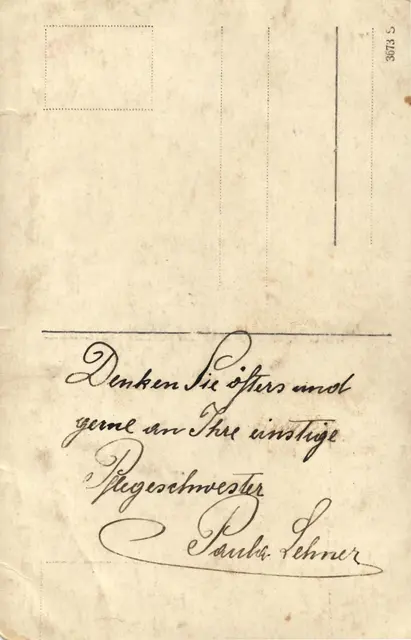 3673 S
Denken Sie öfters und
gerne an Ihre einstige
Pflegeschwester
Paula Lehner